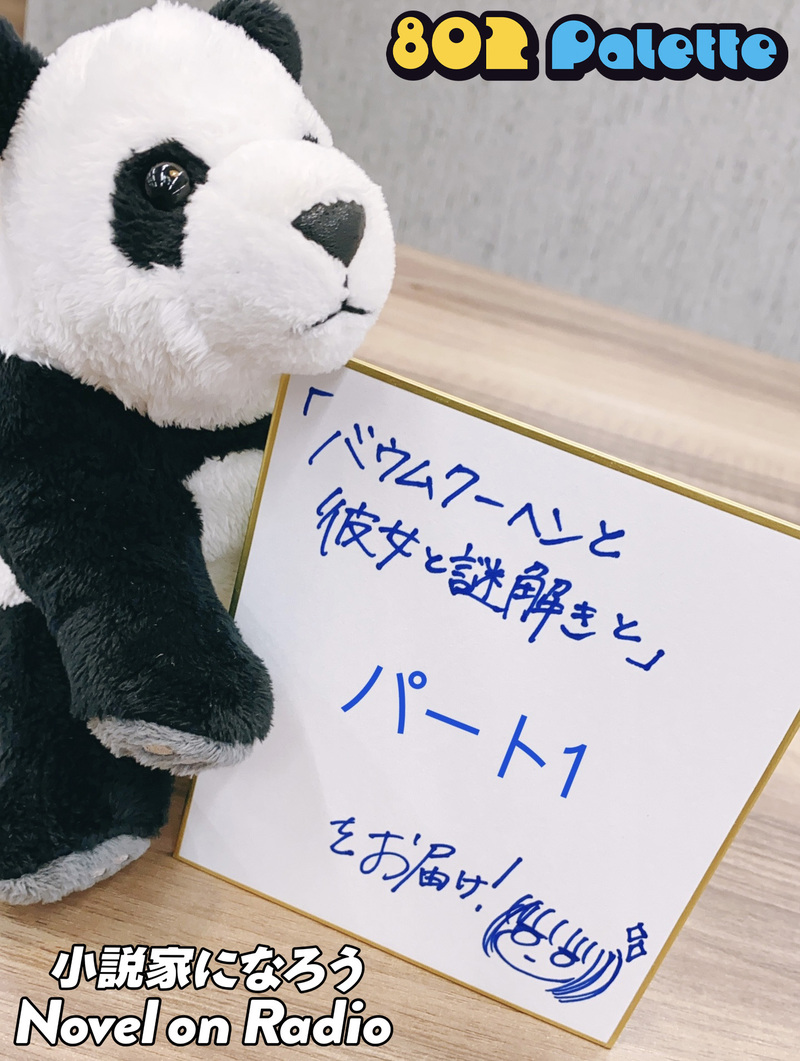 802 Palette
「
バウムクーヘンと
彼女と謎解きと」
パート1
をお届け!
小説家になろう
Novel on Radio